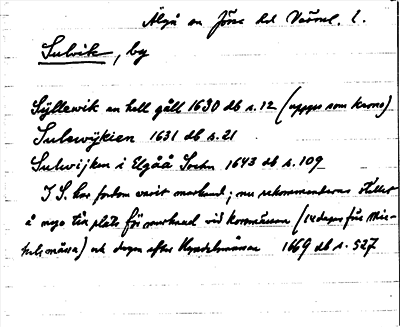 Älgå sn Jösse hd Värml. l.
Sulvik, by
Syllewik en hell gåll 1630 db s. 12 (uppges som krono)
Sulewÿkien 1631 db s. 21
Sulwijken i Elgåå Sochn 1643 db s. 109
I S. har fordom varit marknad; nu rekommenderas
å nya till plats för marknad vid kommissionen (14 dagar för Mic-
helsmässa) och dagen efter Kyndelsmässa 1669 db s. 527